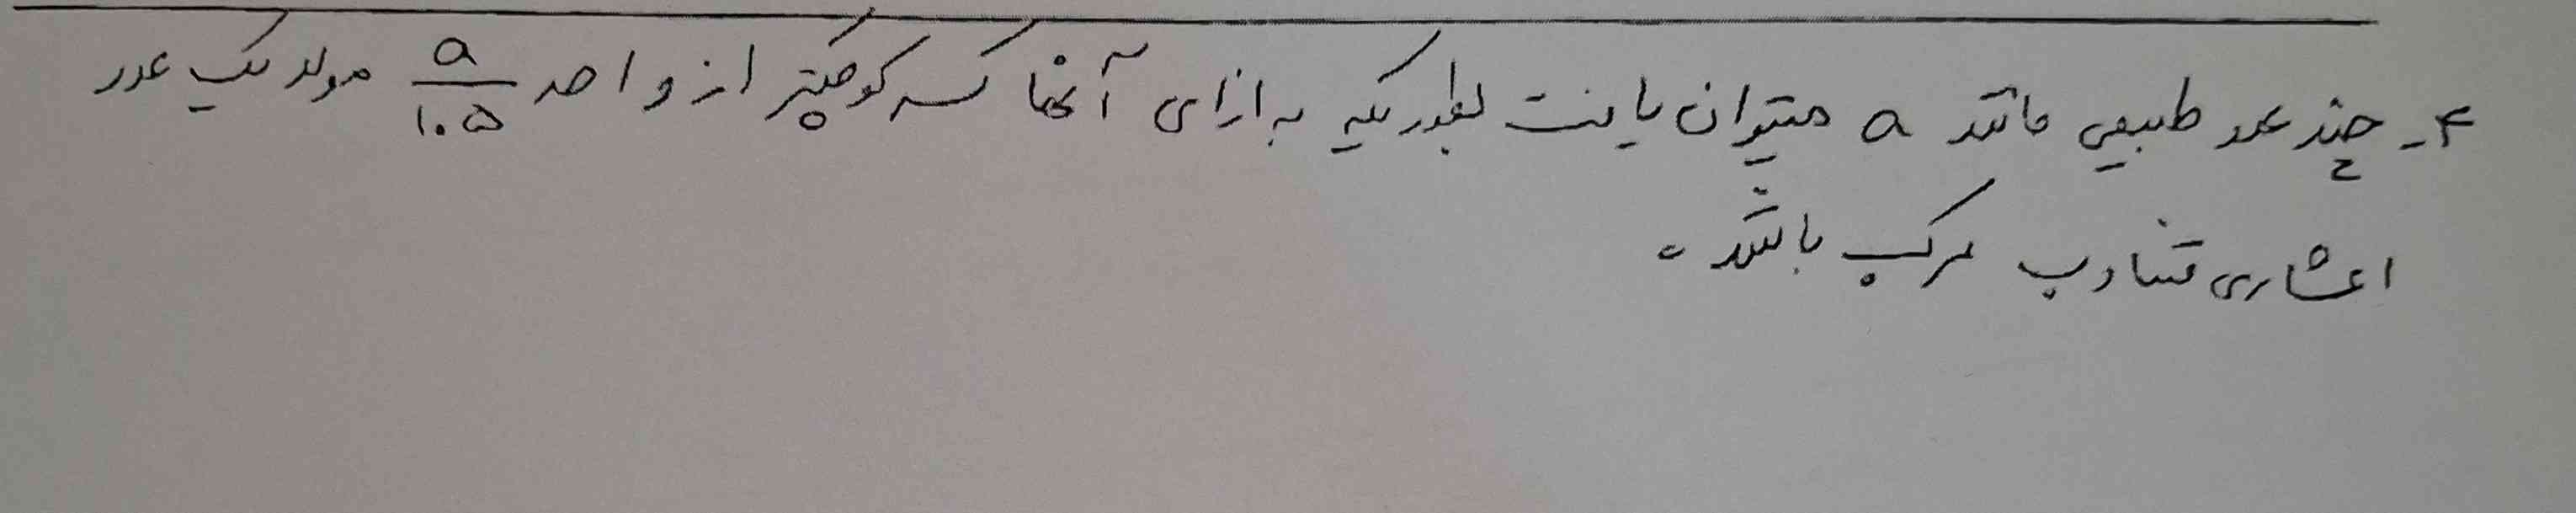 ۴- چند عدد طبیعی مانند a میتوان یافت بطوریکه به ازای آنها کسر کوچکتر از واحد a/۱۰۵ مولد یک عدد
اعشاری متناوب مرکب باشد.